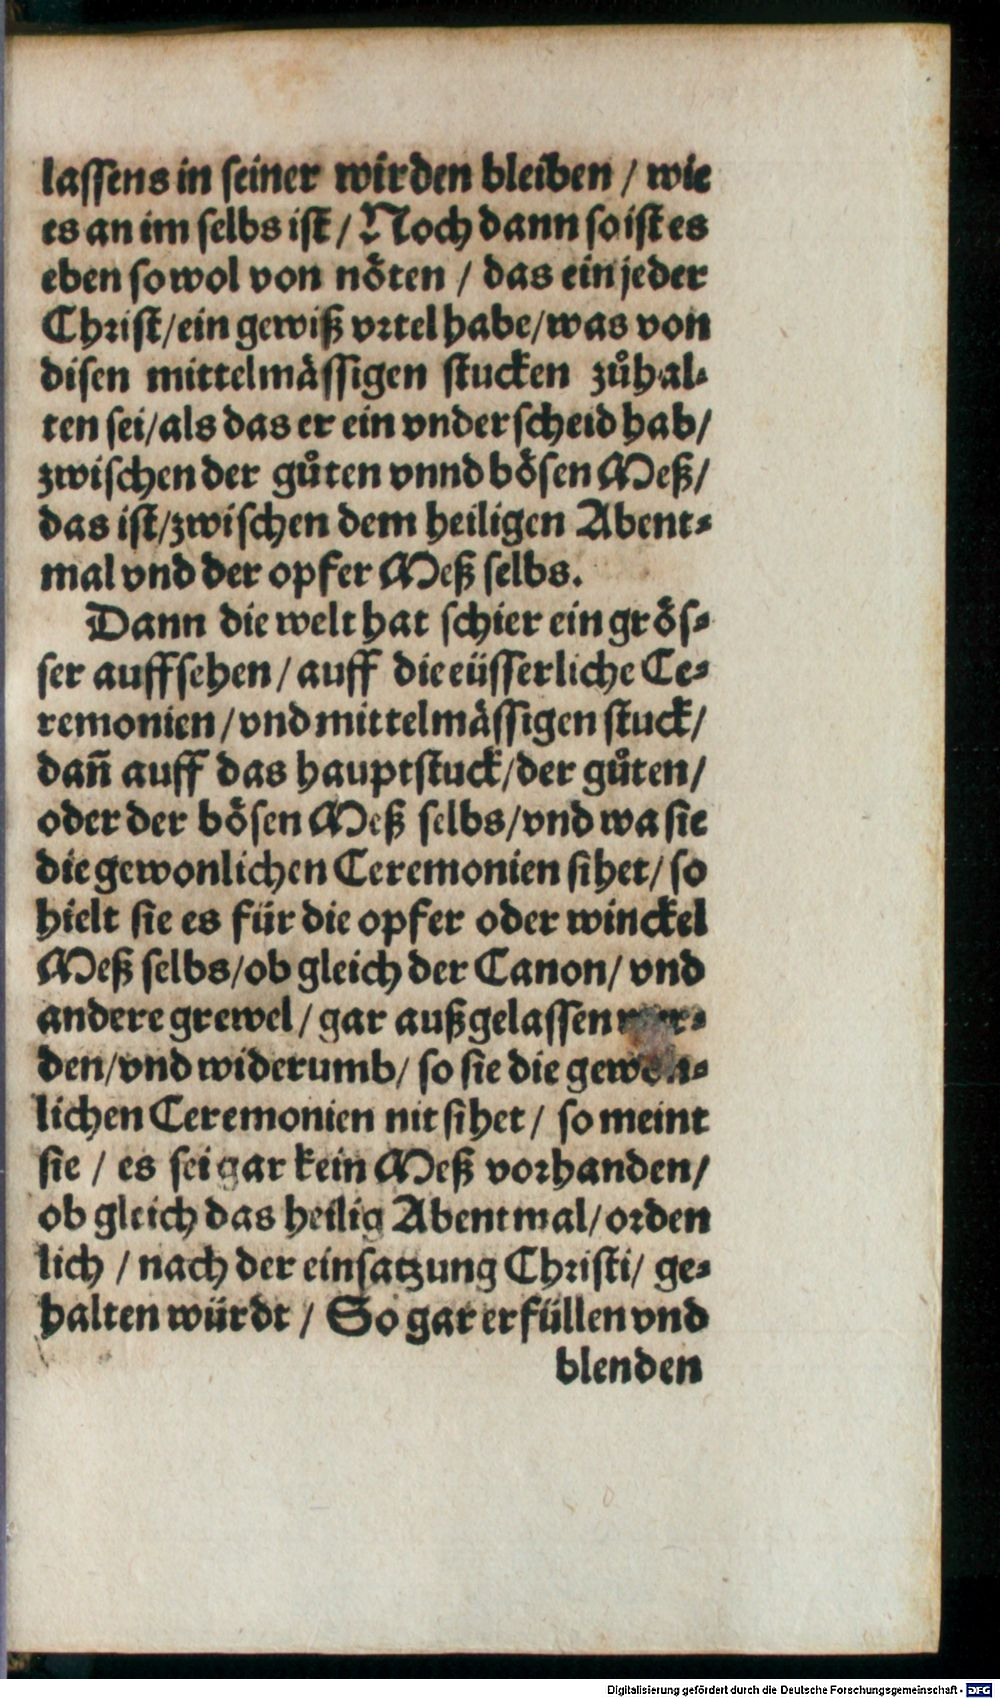 lassens in seiner wirden bleiben / wie
es an im selbs ist / Noch dann so ist es
eben so wol von nöten / das ein jeder
Christ / ein gewiß vrtel habe / was von
disen mittelmässigen stucken zůhal⸗
ten sei / als das er ein vnderscheid hab /
zwischen der gůten vnnd bösen Meß /
das ist / zwischen dem heiligen Abent⸗
mal vnd der opfer Meß selbs.
Dann die welt hat schier ein grös⸗
ser auffsehen / auff die eüsserliche Ce⸗
remonien / vnd mittelmässigen stuck /
dañ auff das hauptstuck / der gůten /
oder der bösen Meß selbs / vnd wa sie
die gewonlichen Ceremonien sihet / so
hielt sie es für die opfer oder winckel
Meß selbs / ob gleich der Canon / vnd
andere grewel / gar außgelassen
den / vnd widerumb / so sie die gewon⸗
lichen Ceremonien nit sihet / so meint
sie / es sei gar kein Meß vorhanden /
ob gleich das heilig Abentmal / orden
lich / nach der einsatzung Christi / ge⸗
halten würdt / So gar erfüllen vnd
blenden
Digitalisierung gefördert durch die Deutsche Forschungsgemeinschaft - DFG